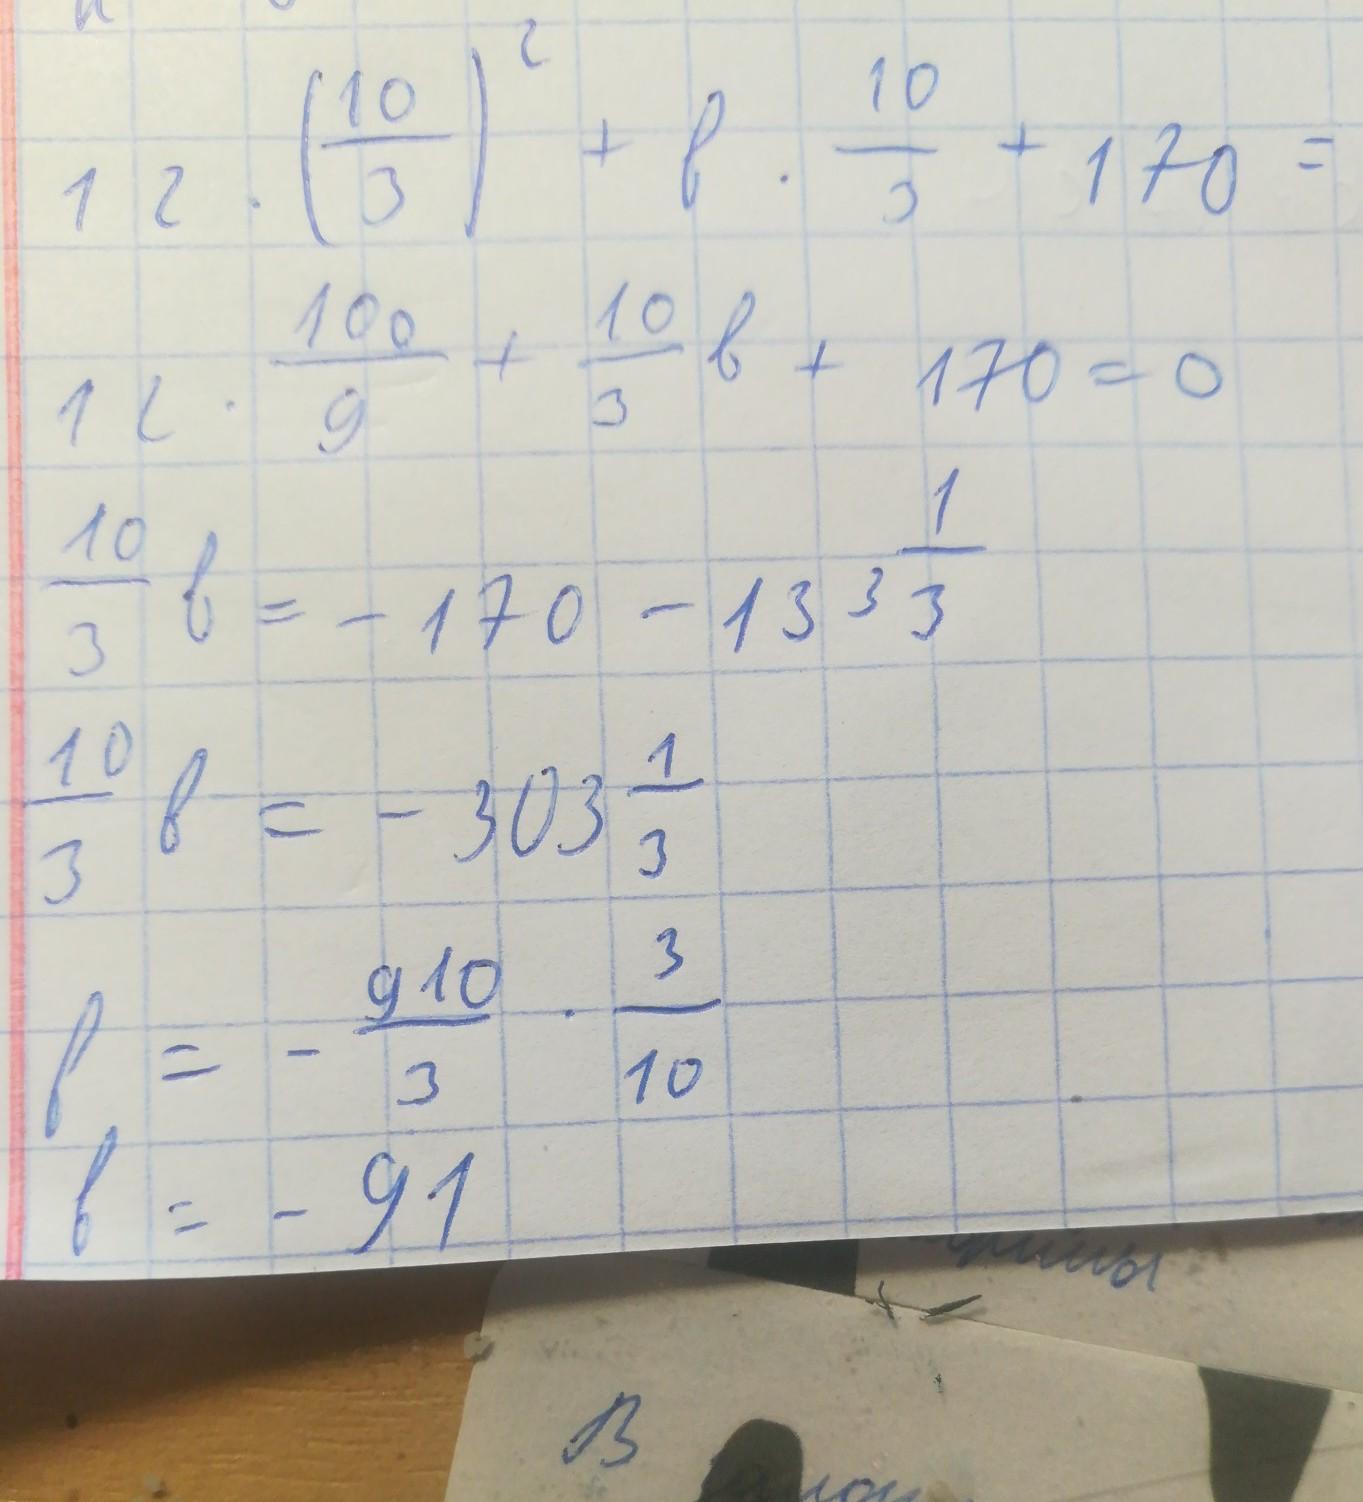 12 · (10/3)² + b · 10/3 + 170 =
12 · 100/9 + 10/3 b + 170 = 0
10/3 b = - 170 - 133 1/3
10/3 b = - 303 1/3
b = - 910/3 · 3/10
b = - 91
В